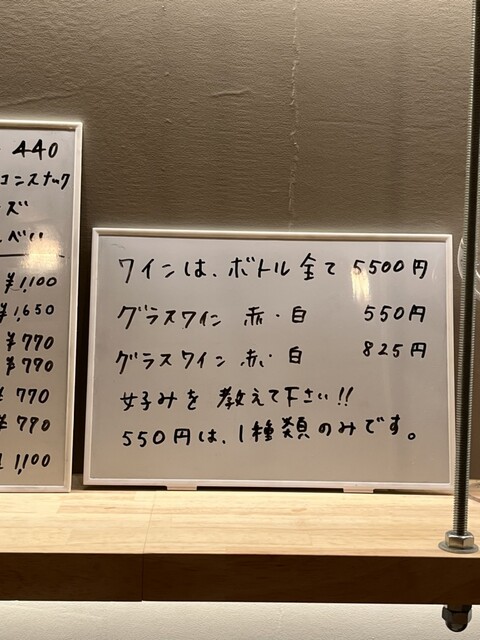 440
コンスナック
ズ
べい
¥1,100
¥1,650
¥770
¥770
¥770
¥770
1,100
ワインは、ボトル全て 5500円
グラスワイン 赤・白 550円
グラスワイン 赤・白 825円
好みを 教えて下さい!!
550円は、1種類のみです。